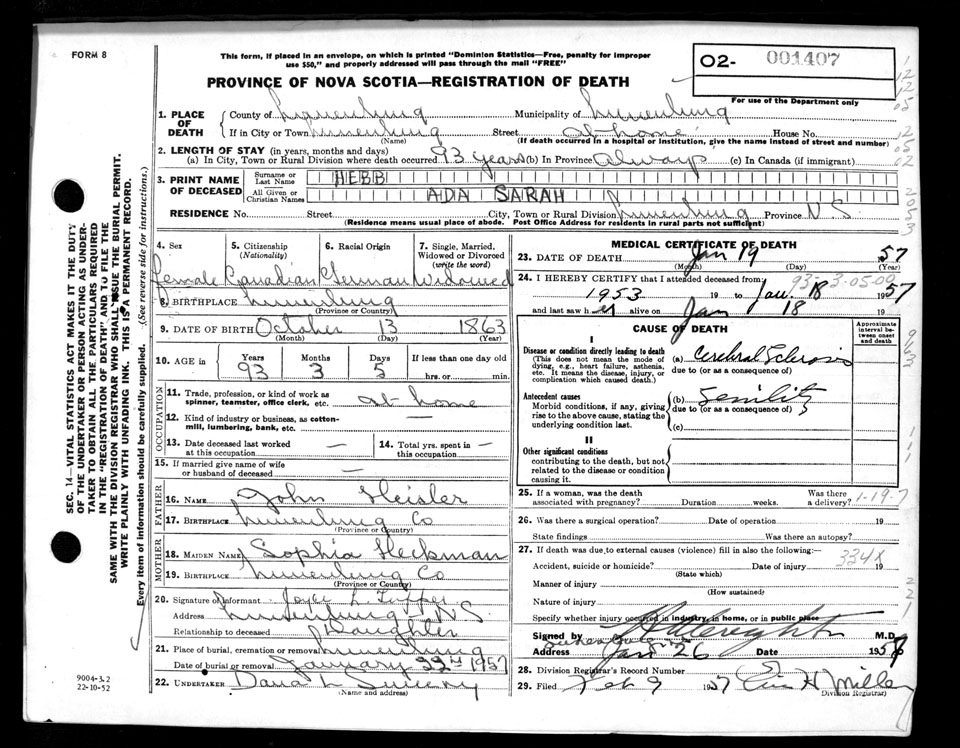 FORM 8
This form, if placed in an envelope, on which is printed "Dominion Statistics—Free, penalty for improper
use $50," and properly addressed will pass through the mail "FREE"
PROVINCE OF NOVA SCOTIA—REGISTRATION OF DEATH
02- 001407
For use of the Department only
1. PLACE OF DEATH
County of Lunenburg Municipality of Lunenburg
If in City or Town Lunenburg Street at home House No.
(Name) (If death occurred in a hospital or institution, give the name instead of street and number)
2. LENGTH OF STAY (in years, months and days)
(a) In City, Town or Rural Division where death occurred 93 years (b) In Province Always (c) In Canada (if immigrant)
3. PRINT NAME OF DECEASED
Surname or Last Name HEBB
All Given or Christian Names ADA SARAH
RESIDENCE No. Street City, Town or Rural Division Lunenburg Province N.S.
(Residence means usual place of abode. Post Office Address for residents in rural parts not sufficient)
4. Sex
female
5. Citizenship (Nationality)
Canadian
6. Racial Origin
German
7. Single, Married, Widowed or Divorced (write the word)
Widowed
8. BIRTHPLACE Lunenburg
(Province or Country)
9. DATE OF BIRTH October 13 1863
(Month) (Day) (Year)
10. AGE in Years Months Days If less than one day old
93 3 5 hrs. or min.
OCCUPATION
11. Trade, profession, or kind of work as spinner, teamster, office clerk, etc. at home
12. Kind of industry or business, as cotton-mill, lumbering, bank, etc. —
13. Date deceased last worked at this occupation —
14. Total yrs. spent in this occupation —
15. If married give name of wife or husband of deceased —
FATHER
16. NAME John Heisler
17. BIRTHPLACE Lunenburg Co
(Province or Country)
MOTHER
18. MAIDEN NAME Sophia Heckman
19. BIRTHPLACE Lunenburg Co
(Province or Country)
20. Signature of informant Joyce L Tupper
Address Lunenburg N S
Relationship to deceased Daughter
21. Place of burial, cremation or removal Lunenburg
Date of burial or removal January 22nd 1957
22. UNDERTAKER
(Name and address)
MEDICAL CERTIFICATE OF DEATH
23. DATE OF DEATH Jan 19 1957
(Month) (Day) (Year)
24. I HEREBY CERTIFY that I attended deceased from
1953 19 to Jan. 18 1957
and last saw h er alive on Jan 18
CAUSE OF DEATH
Approximate interval between onset and death
I
Disease or condition directly leading to death (a) Cerebral Sclerosis
(This does not mean the mode of dying, e.g., heart failure, asthenia, etc. It means the disease, injury, or complication which caused death.)
due to (or as a consequence of)
Antecedent causes (b) Senility
Morbid conditions, if any, giving rise to the above cause, stating the underlying condition last.
due to (or as a consequence of)
(c)
II
Other significant conditions
contributing to the death, but not related to the disease or condition causing it.
25. If a woman, was the death associated with pregnancy? Duration weeks. Was there a delivery?
1-19-7
26. Was there a surgical operation? Date of operation 19
State findings Was there an autopsy?
27. If death was due to external causes (violence) fill in also the following:—
334X
Accident, suicide or homicide? Date of injury 19
(State which)
Manner of injury
(How sustained)
Nature of injury
Specify whether injury occurred in industry, in home, or in public place
Signed by M.D.
Address Date Jan 26 1957
28. Division Registrar's Record Number 5
29. Filed Feb 9 1957
Division Registrar
SEC. 14—VITAL STATISTICS ACT MAKES IT THE DUTY
OF THE UNDERTAKER OR PERSON ACTING AS UNDER-
TAKER TO OBTAIN ALL THE PARTICULARS REQUIRED
IN THE "REGISTRATION OF DEATH" AND TO FILE THE
SAME WITH THE DIVISION REGISTRAR WHO SHALL ISSUE THE BURIAL PERMIT.
WRITE PLAINLY WITH UNFADING INK. THIS IS A PERMANENT RECORD.
Every item of information should be carefully supplied. (See reverse side for instructions.)
9004-3.2
22-10-52